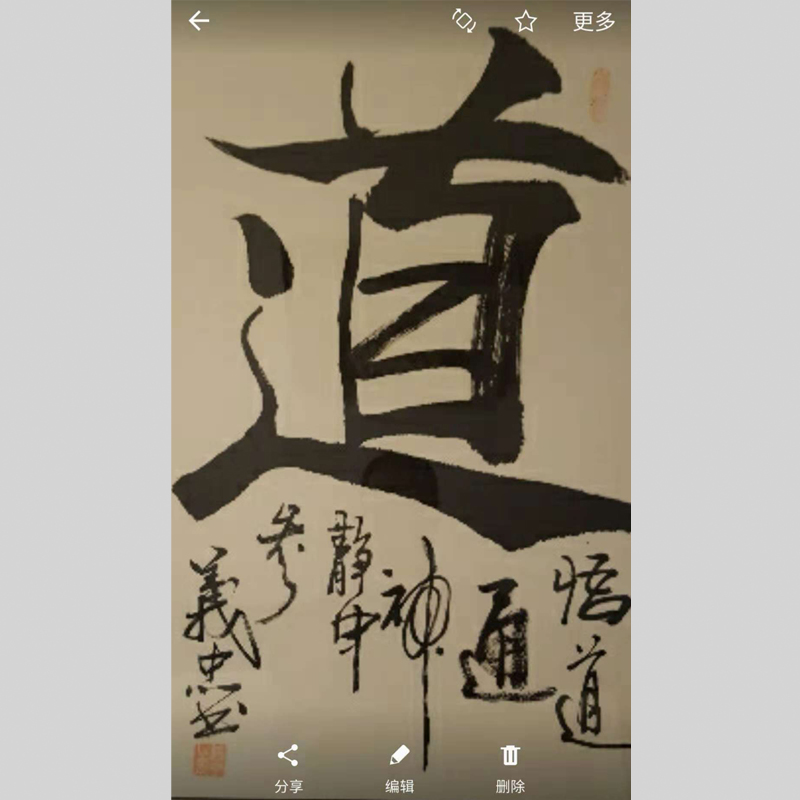 更多
道
悟道
通
神
静中
参
義忠书
分享
编辑
删除